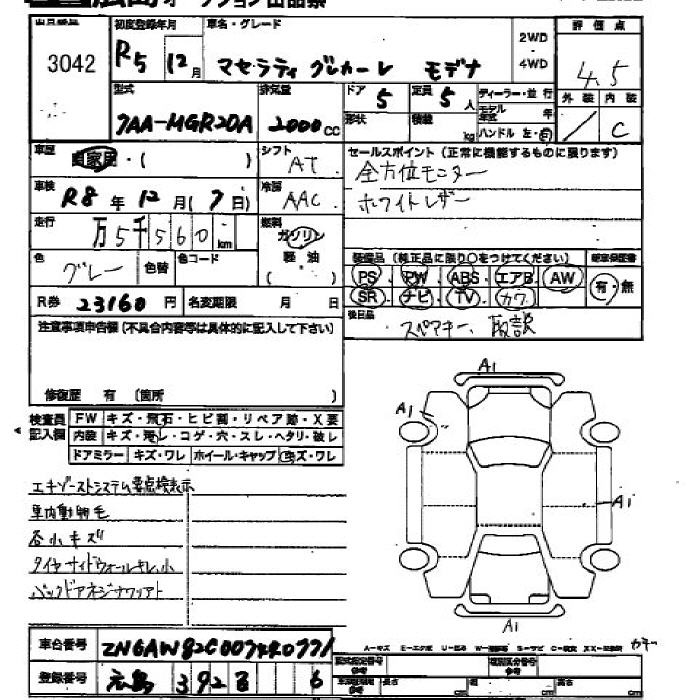 広島オークション出品票
出品番号 初度登録年月 車名・グレード 評価点
3042 R5 12月 マセラティ グレカーレ モデナ 2WD ・ 4WD 4.5
型式 排気量 ドア 定員 ディーラー・並行 外装 内装
7AA-MGR20A 2000cc 5 5人 モデル年式 年 C
形状 積載 kg ハンドル 左・右
車歴 自家用・( ) シフト AT セールスポイント(正常に機能するものに限ります)
全方位モニター
車検 R8年12月(7日) 冷房 AAC ホワイトレザー
走行 万5千560km 燃料 ガソリン 軽油 ( )
色 グレー 色替 色コード
装備品(純正品に限り○をつけてください) 新車保証書
PS・PW・ABS・エアB・AW 有・無
SR・ナビ・TV・カワ
R券 23160円 名変期限 月 日
後日品 スペアキー、取説
注意事項申告欄(不具合内容等は具体的に記入して下さい)
修復歴 有 (箇所 )
検査員記入欄 FW キズ・飛石・ヒビ割・リペア跡・X要
内装 キズ・汚レ・コゲ・穴・スレ・ヘタリ・破レ
ドアミラー キズ・ワレ ホイール・キャップ キズ・ワレ
A1
A1
A1
A1
エキゾーストシステム要点検表示
車内動物毛
各小キズ
タイヤサイドウォールキレ小
バックドアネジナワアト
車台番号
登録番号 広島 392 6
cm cm cm